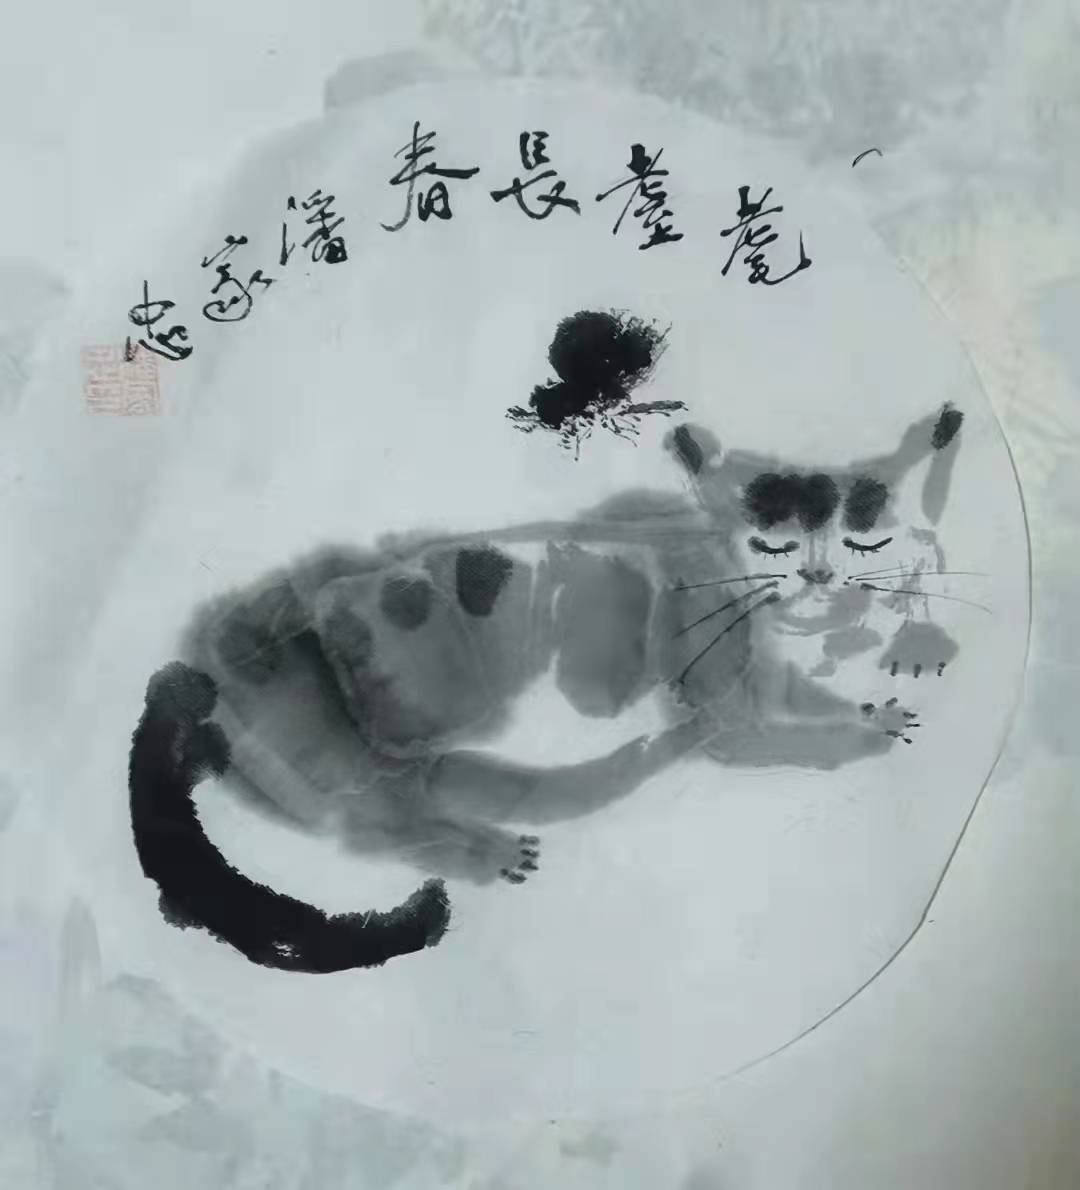 耄耋長春潘家忠